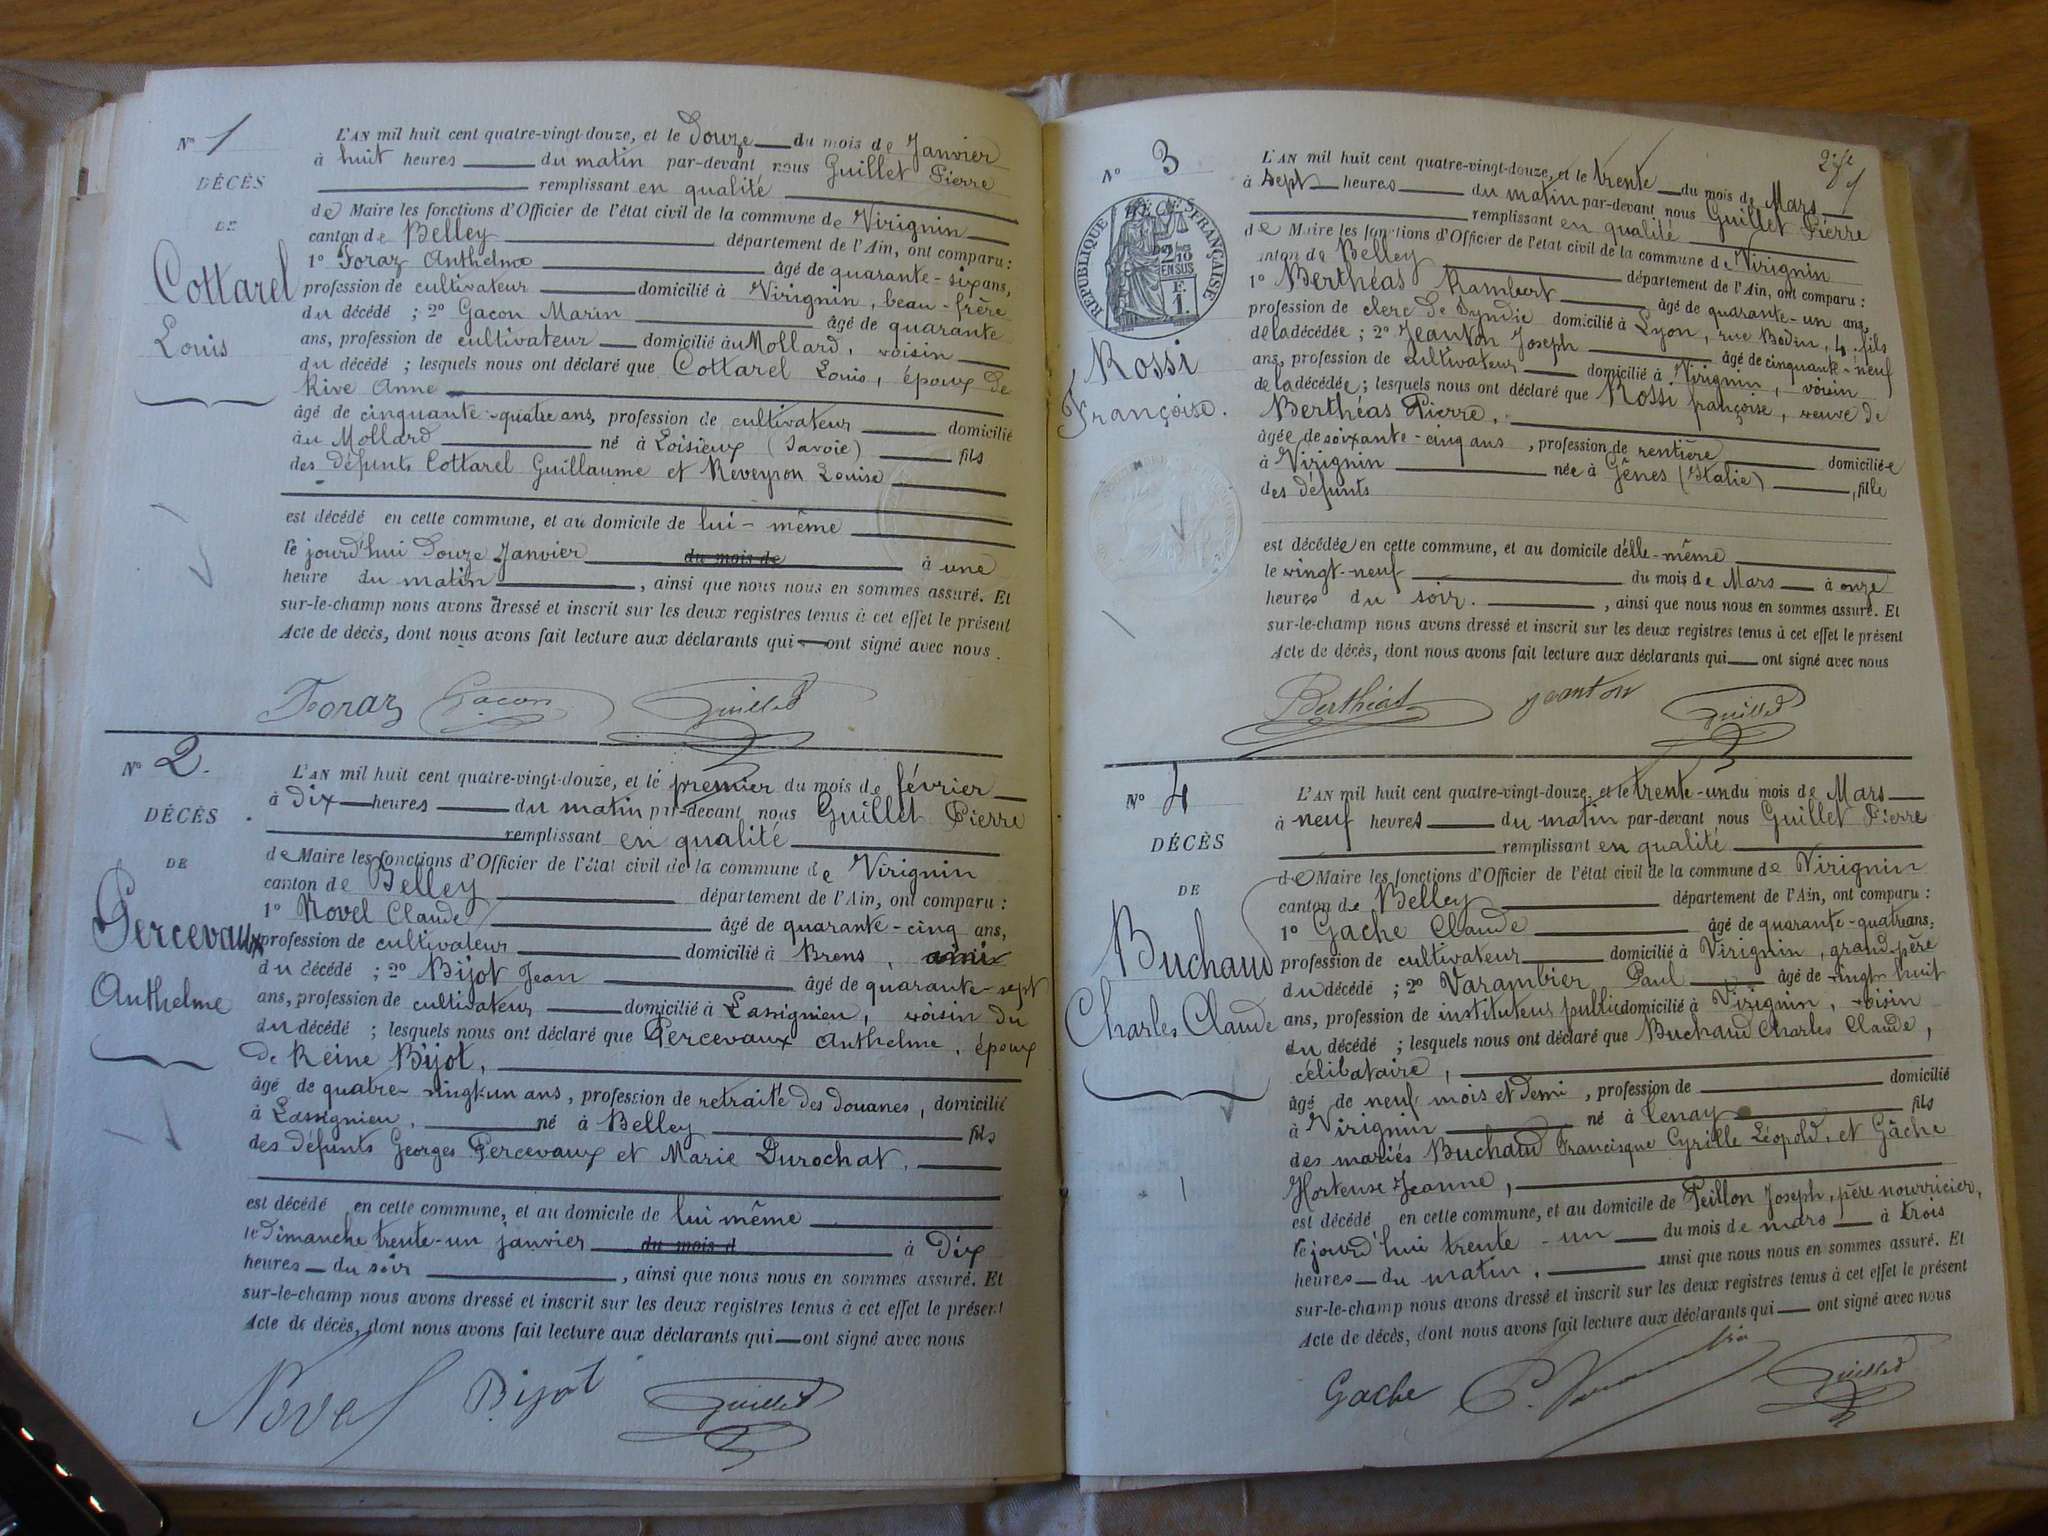 N° 1
DÉCÈS
DE
Cottarel
Louis
L'AN mil huit cent quatre-vingt-douze, et le Douze du mois de Janvier
à huit heures du matin par-devant nous Guillet Pierre
remplissant en qualité
de Maire les fonctions d'Officier de l'état civil de la commune de Virignin
canton de Belley département de l'Ain, ont comparu :
1° Foraz Anthelme âgé de quarante-six ans,
profession de cultivateur domicilié à Virignin, beau-frère
du décédé ; 2° Gacon Marin âgé de quarante
ans, profession de cultivateur domicilié au Mollard, voisin
du décédé ; lesquels nous ont déclaré que Cottarel Louis, époux de
Rive Anne
âgé de cinquante-quatre ans, profession de cultivateur domicilié
au Mollard né à Loisieux (Savoie) fils
des défunts Cottarel Guillaume et Reveyron Louise
est décédé en cette commune, et au domicile de lui-même
le jourd'hui Douze Janvier du mois de à une
heure du matin, ainsi que nous nous en sommes assuré. Et
sur-le-champ nous avons dressé et inscrit sur les deux registres tenus à cet effet le présent
Acte de décès, dont nous avons fait lecture aux déclarants qui ont signé avec nous.
Foraz Gacon Guillet
N° 2.
DÉCÈS
DE
Percevaux
Anthelme
L'AN mil huit cent quatre-vingt-douze, et le premier du mois de février
à Dix heures du matin par-devant nous Guillet Pierre
remplissant en qualité
de Maire les fonctions d'Officier de l'état civil de la commune de Virignin
canton de Belley département de l'Ain, ont comparu :
1° Novel Claude âgé de quarante-cinq ans,
profession de cultivateur domicilié à Brens, ami
du décédé ; 2° Bijot Jean âgé de quarante-sept
ans, profession de cultivateur domicilié à Lassignieu, voisin du
du décédé ; lesquels nous ont déclaré que Percevaux Anthelme, époux
de Reine Bijot,
âgé de quatre-vingt-un ans, profession de retraité des douanes, domicilié
à Lassignieu, né à Belley fils
des défunts Georges Percevaux et Marie Durochat,
est décédé en cette commune, et au domicile de lui même
le Dimanche trente-un janvier du mois d à Dix
heures du soir, ainsi que nous nous en sommes assuré. Et
sur-le-champ nous avons dressé et inscrit sur les deux registres tenus à cet effet le présent
Acte de décès, dont nous avons fait lecture aux déclarants qui ont signé avec nous
Novel Bijot Guillet
N° 3
RÉPUBLIQUE FRANÇAISE
2/10
EN SUS
F.
1.
Rossi
Françoise.
L'AN mil huit cent quatre-vingt-douze, et le trente du mois de Mars
à sept heures du matin par-devant nous Guillet Pierre
remplissant en qualité
de Maire les fonctions d'Officier de l'état civil de la commune de Virignin
canton de Belley département de l'Ain, ont comparu :
1° Berthéas Rambert âgé de quarante-un ans,
profession de clerc de Syndic domicilié à Lyon, rue Bodin, 4. fils
de la décédée ; 2° Jeanton Joseph âgé de cinquante-neuf
ans, profession de cultivateur domicilié à Virignin, voisin
de la décédée ; lesquels nous ont déclaré que Rossi françoise, veuve de
Berthéas Pierre,
âgée de soixante-cinq ans, profession de rentière domiciliée
à Virignin née à Gênes (Italie), fille
des défunts
est décédée en cette commune, et au domicile d'elle-même
le vingt-neuf du mois de Mars à onze
heures du soir., ainsi que nous nous en sommes assuré. Et
sur-le-champ nous avons dressé et inscrit sur les deux registres tenus à cet effet le présent
Acte de décès, dont nous avons fait lecture aux déclarants qui ont signé avec nous
Berthéas Jeanton Guillet
N° 4
DÉCÈS
DE
Buchaud
Charles Claude
L'AN mil huit cent quatre-vingt-douze, et le trente-un du mois de Mars
à neuf heures du matin par-devant nous Guillet Pierre
remplissant en qualité
de Maire les fonctions d'Officier de l'état civil de la commune de Virignin
canton de Belley département de l'Ain, ont comparu :
1° Gache Claude âgé de quarante-quatre ans,
profession de cultivateur domicilié à Virignin, grand-père
du décédé ; 2° Varambier Paul âgé de vingt-huit
ans, profession de instituteur public domicilié à Virignin, voisin
du décédé ; lesquels nous ont déclaré que Buchaud Charles Claude,
célibataire,
âgé de neuf mois et demi, profession de domicilié
à Virignin né à Tenay fils
des mariés Buchaud Francisque Cyrille Léopold, et Gâche
Hortense Jeanne,
est décédé en cette commune, et au domicile de Peillon Joseph, père nourricier,
le jourd'hui trente-un du mois de mars à trois
heures du matin, ainsi que nous nous en sommes assuré. Et
sur-le-champ nous avons dressé et inscrit sur les deux registres tenus à cet effet le présent
Acte de décès, dont nous avons fait lecture aux déclarants qui ont signé avec nous
Gache Guillet